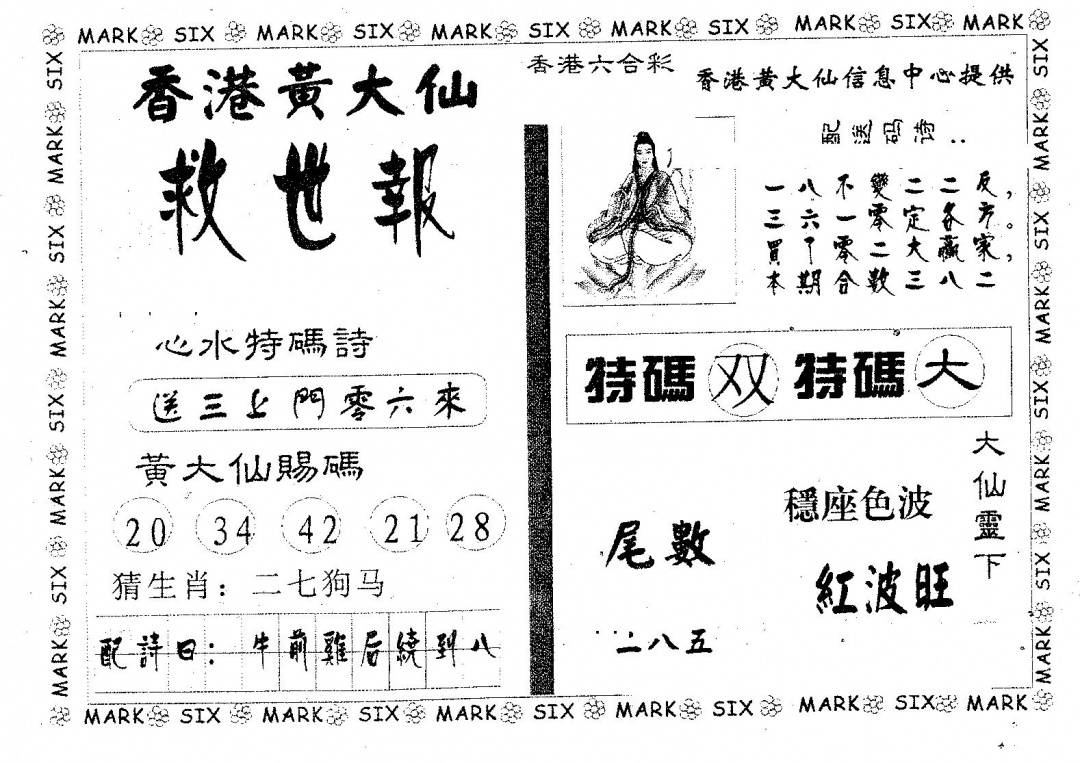 MARK SIX MARK SIX MARK SIX MARK SIX MARK SIX MARK
香港黃大仙
救世報
心水特碼詩
送三上門零六來
黃大仙賜碼
20 34 42 21 28
猜生肖：二七狗马
配詩曰：牛前雞后繞到八
香港六合彩
香港黄大仙信息中心提供
配送码诗：
一八不變二二反，
三六一零定各方。
買丁零二大赢家，
本期合数三八二
特碼双 特碼大
大仙靈下
穩座色波
紅波旺
尾數
二八五
MARK SIX MARK SIX MARK SIX MARK SIX MARK SIX MARK
MARK SIX MARK SIX MARK SIX MARK SIX
MARK SIX MARK SIX MARK SIX MARK SIX